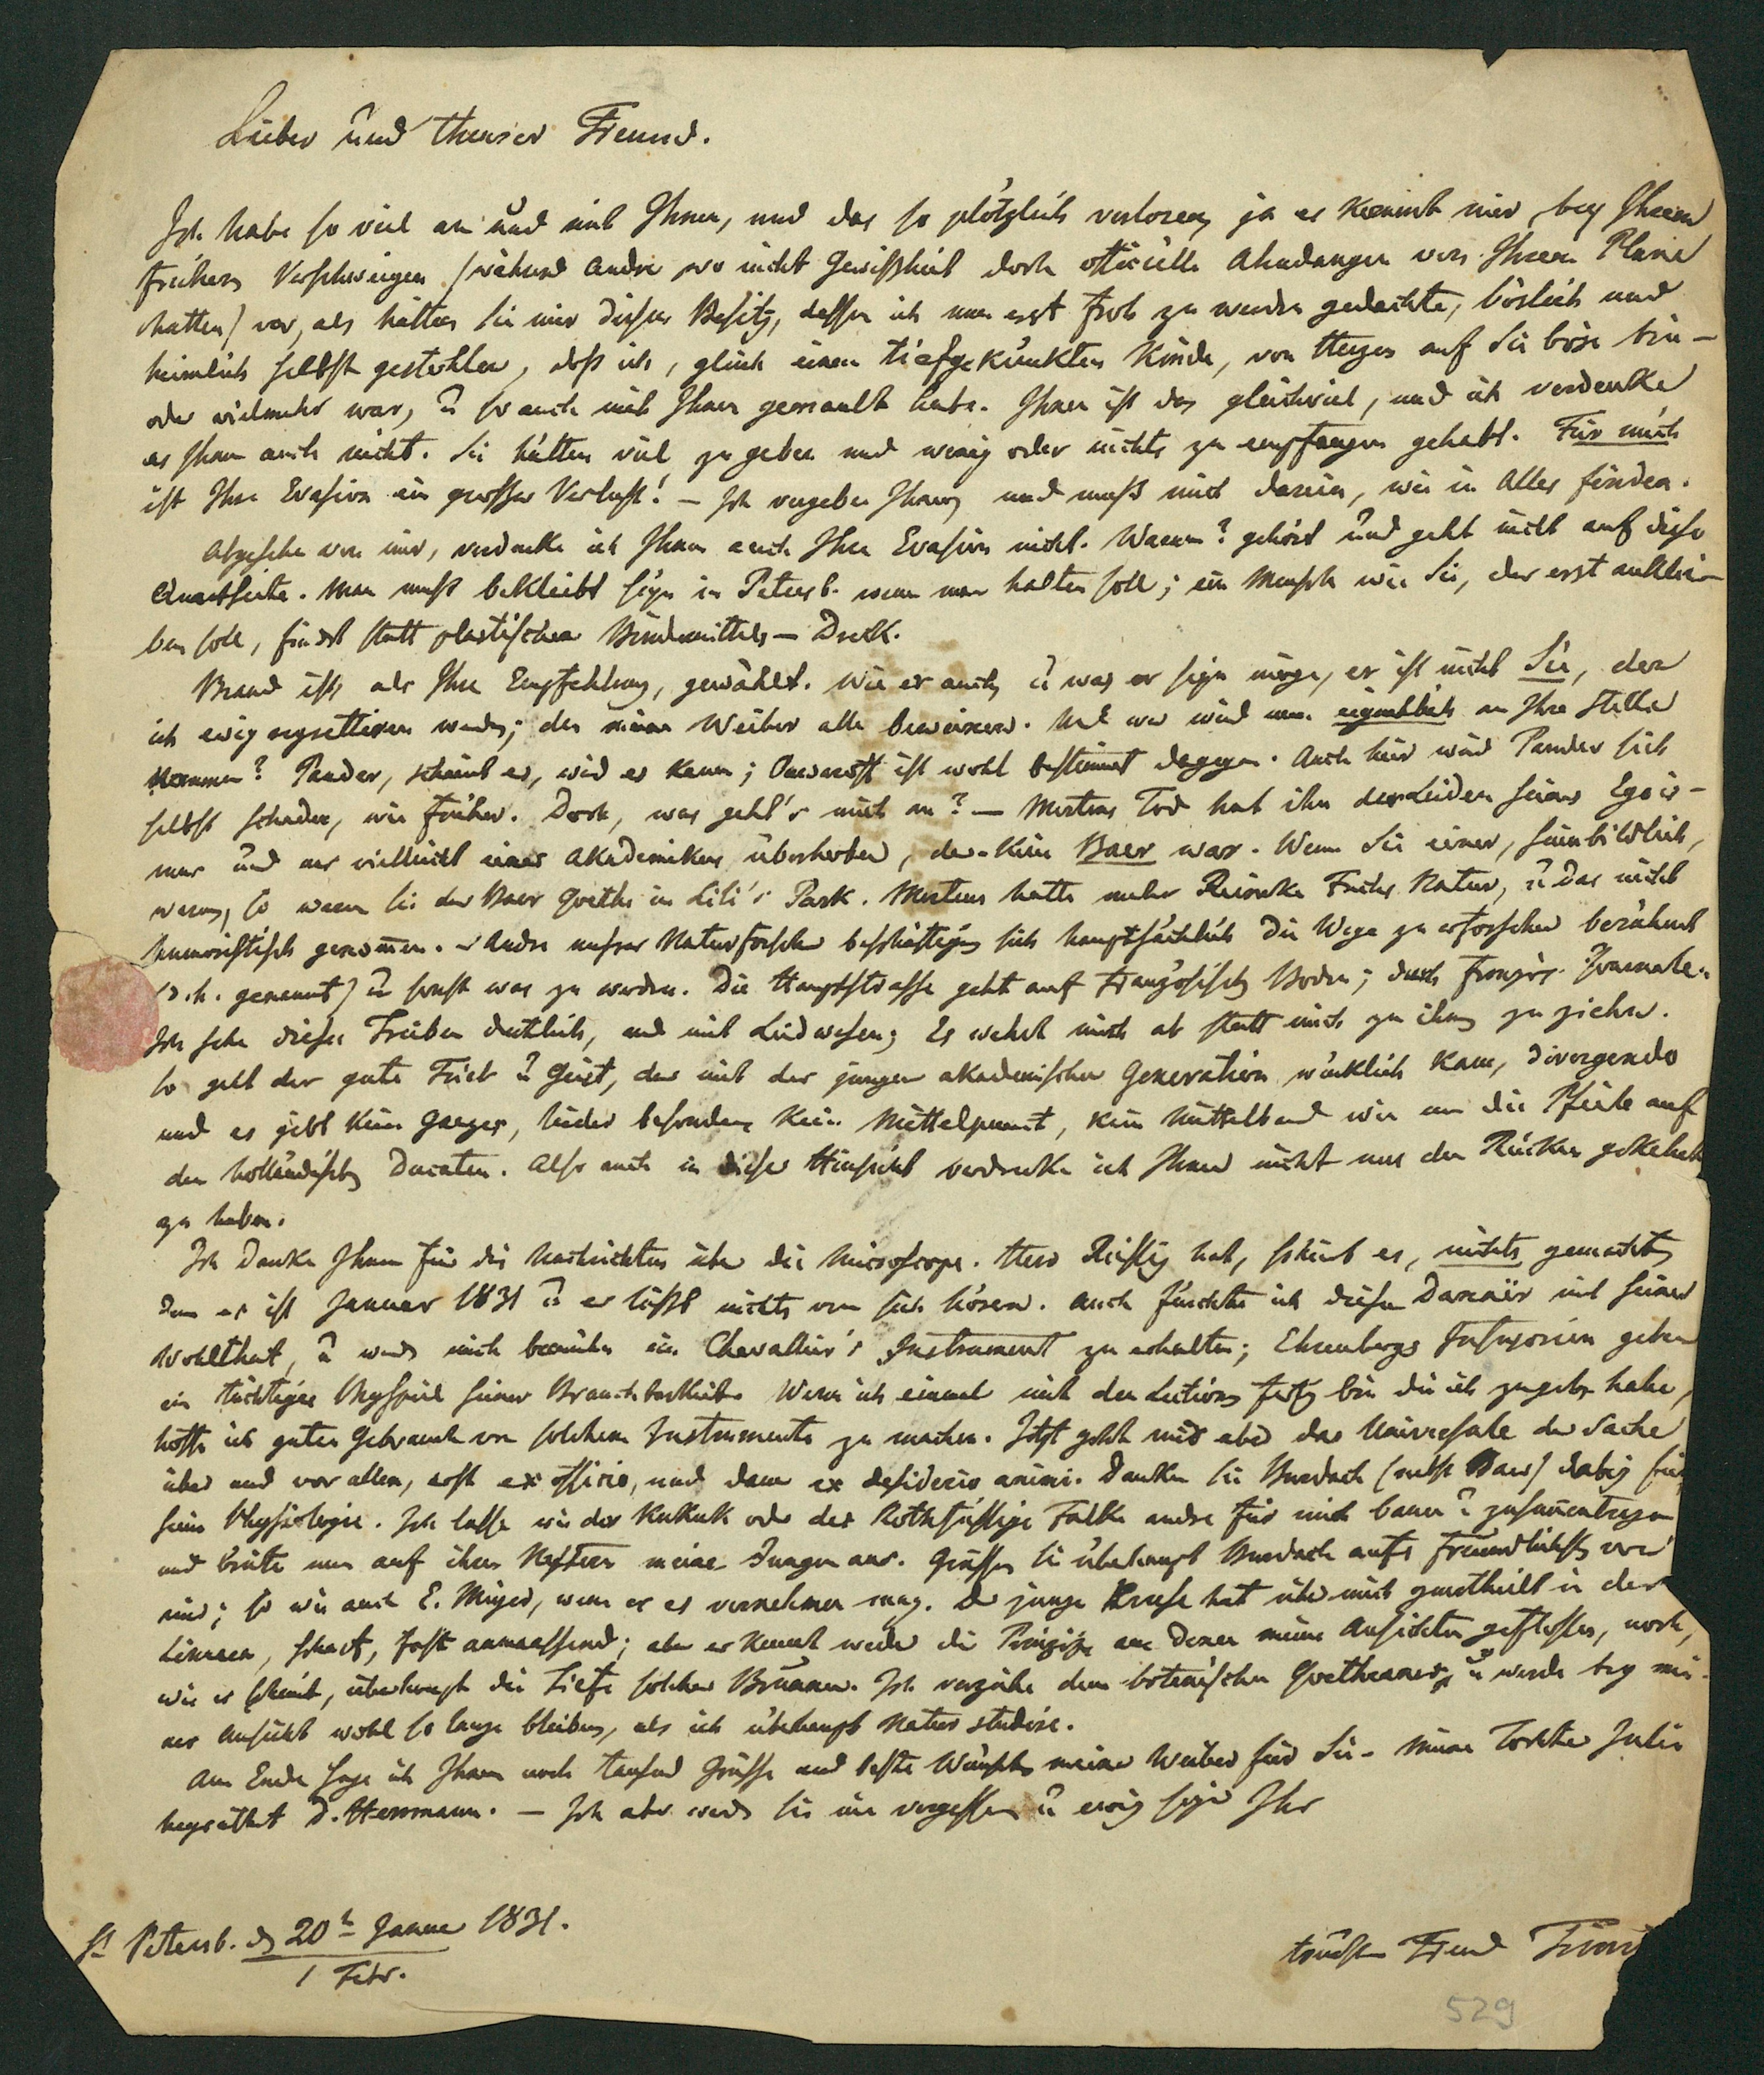 Lieber und theurer Freund.
Ich habe so viel an und mit Ihnen, und das so plötzlich verloren, ja es kommt mir, bey Ihrem
frühern Verschweigen (während Andre wo nicht Gewißheit doch officielle Ahndungen von Ihrem Plane
hatten) vor, als hätten Sie mir diesen Besitz, dessen ich nun erst froh zu werden gedachte, böslich und
heimlich selbst gestohlen, daß ich, gleich einem tiefgekränkten Kinde, von Herzen auf Sie böse bin –
oder vielmehr war, u so auch mit Ihnen gemault habe. Ihnen ist das gleichviel, und ich verdenke
es Ihnen auch nicht. Sie hätten viel zu geben und wenig oder nichts zu empfangen gehabt. Für mich
ist Ihre Evasion ein grosser Verlust! – Ich vergebe Ihnen, und muß mich darein, wie in Alles finden.
Abgesehn von mir, verdenke ich Ihnen auch Ihre Evasion nicht. Warum? gehört und geht nicht auf diese
Quartseite. Man muß beklebt seyn in Petersb. wenn man halten soll; ein Mensch wie Sie, der erst ankle-
ben soll, findet statt plastischen Bindemittels – Dreck.
Brand ist, als Ihre Empfehlung, gewählt. Wie er auch, u was er seyn möge, er ist nicht Sie, den
ich ewig regrettiren werde; den meine Weiber alle beweinen. Und wer wird nun eigentlich an Ihre Stelle
kommen? Pander, scheint es, wird es kaum; ist wohl bestimmt dagegen. Auch hier wird Pander sich
selbst schaden, wie früher. Doch, was geht's mich an? – Mertens Tod hat ihn der Leiden seines Egois-
mus und uns vielleicht eines Akademikers überhoben, der kein Baer war. Wenn Sie einer, sinnbildlich,
waren, so waren Sie der Baer Goethe in Lili's Park. Mertens hatte mehr Reineke Fuchs Natur, u das nicht
humoristisch genommen. – Andre unsrer Naturforscher beschäftigen sich hauptsächlich die Wege zu erforschen berühmt
(d.h. genannt) u sonst was zu werden. Die Hauptstrasse geht auf Französischen Boden; durch Französ. Journale.
Ich sehe dieses Treiben deutlich, und mit Leidwesen; Es wehrt mich ab statt mich zu ihnen zu ziehen.
So geht der gute Trieb u Geist, der mit der jungen akademischen Generation wirklich kam, divergendo
und es giebt kein Ganzes, leider besonders kein Mittelpunct, kein Mittelband wie um die Pfeile auf
den holländischen Ducaten. Also auch in dieser Hinsicht verdenke ich Ihnen nicht uns den Rücken gekehrt
zu haben.
Ich danke Ihnen für die Nachrichten über die Microscope. Herr Reissig hat, scheint es, nichts gemacht,
denn es ist Januar 1831 u er läßt nichts von sich hören. Auch fürchte ich diesen Danaër mit seiner
Wohlthat, u werde mich bemühen ein Chevallier's Instrument zu erhalten; Ehrenbergs Infusorien geben
ein tüchtiges Beyspiel seiner Brauchbarkeit. Wenn ich einmal mit den Lections fertig bin die ich zugesagt habe,
hoffe ich guten Gebrauch von solchem Instrumente zu machen. Jetzt geht mir aber das Universale der Sache
über und vor allem, erst ex officio, und dann ex desiderio animi. Danken Sie Burdach (nebst Baer) dabey für
seine Physiologie. Ich lasse wie der Kukuk oder der Rothfüssige Falke andre für mich bauen u zusammentragen
und brüte nun auf ihren Nestern meine Jungen aus. Grüssen Sie überhaupt Burdach aufs freundlichste von
mir; so wie auch E. Meyer, wenn er es vernehmen mag. Der junge Mensch hat über mich geurtheilt in der
Linnaea, scharf, fast anmaassend; aber er kennt weder die Prinzipe aus denen meine Ansichten geflossen, noch,
wie es scheint, überhaupt die Tiefe solcher Brunnen. Ich verzeihe dem botanischen Goetheaner, u werde bey mei-
ner Ansicht wohl so lange bleiben, als ich überhaupt Natur studire.
Am Ende sage ich Ihnen noch tausend Grüsse und beste Wünsche meiner Weiber für Sie. Meine Tochter Julie
heyrathet D. Herrmann. – Ich aber werde Sie nie vergessen u ewig seyn Ihr
St Petersb. d 20t Januar 1831.
1 Febr.
treuster Freund
529